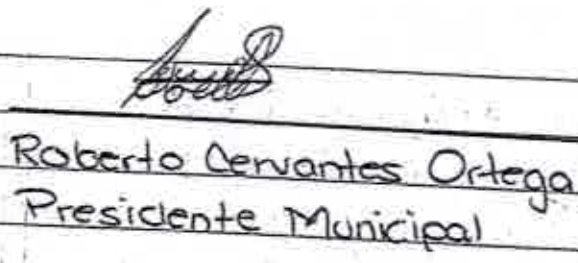 Roberto Cervantes Ortega
Presidente Municipal